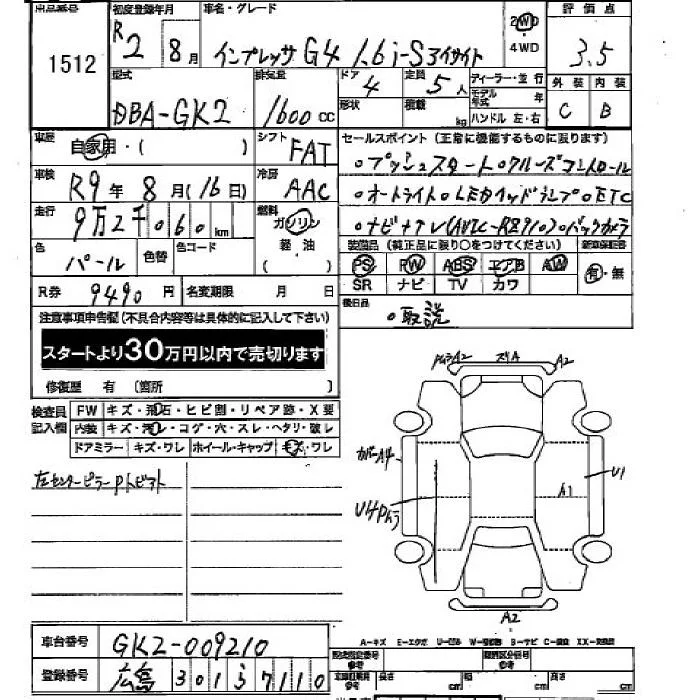 出品番号 初度登録年月 車名・グレード 評価点
1512 R2 8月 インプレッサG4 1.6i-S アイサイト 2WD・4WD 3.5
型式 排気量 ドア 定員 ディーラー・並行 外装 内装
DBA-GK2 1600cc 4 5人 モデル年式 年 C B
形状 積載 kg ハンドル 左・右
車歴 自家用・( ) シフト FAT セールスポイント(正常に機能するものに限ります)
車検 R9年 8月(16日) 冷房 AAC
○プッシュスタート○クルーズコントロール
○オートライト○LEDヘッドランプ○ETC
○ナビ+TV(AVIC-RZ910)○バックカメラ
走行 9万2千060km 燃料 ガソリン 軽油 ( )
色 パール 色替 色コード
装備品(純正品に限り○をつけてください) 新車保証書
PS PW ABS エアB AW 有・無
SR ナビ TV カワ
R券 9490円 名変期限 月 日
後日品
○取説
注意事項申告欄(不具合内容等は具体的に記入して下さい)
スタートより30万円以内で売切ります
修復歴 有 (箇所 )
検査員記入欄 FW キズ・飛石・ヒビ割・リペア跡・X要
内装 キズ・汚レ・コゲ・穴・スレ・ヘタリ・破レ
ドアミラー キズ・ワレ ホイール・キャップ キズ・ワレ
左センターピラーPトビアト
PムラA2 スリA A2
カバーA4 U1
A1
U4Pムラ
A2
A-キズ E-エクボ U-凹ミ W-補修跡 S-サビ C-腐食 XX-交換済
車台番号 GK2-009210
登録番号 広島 301 ら 7110
長さ cm 幅 cm 高さ cm